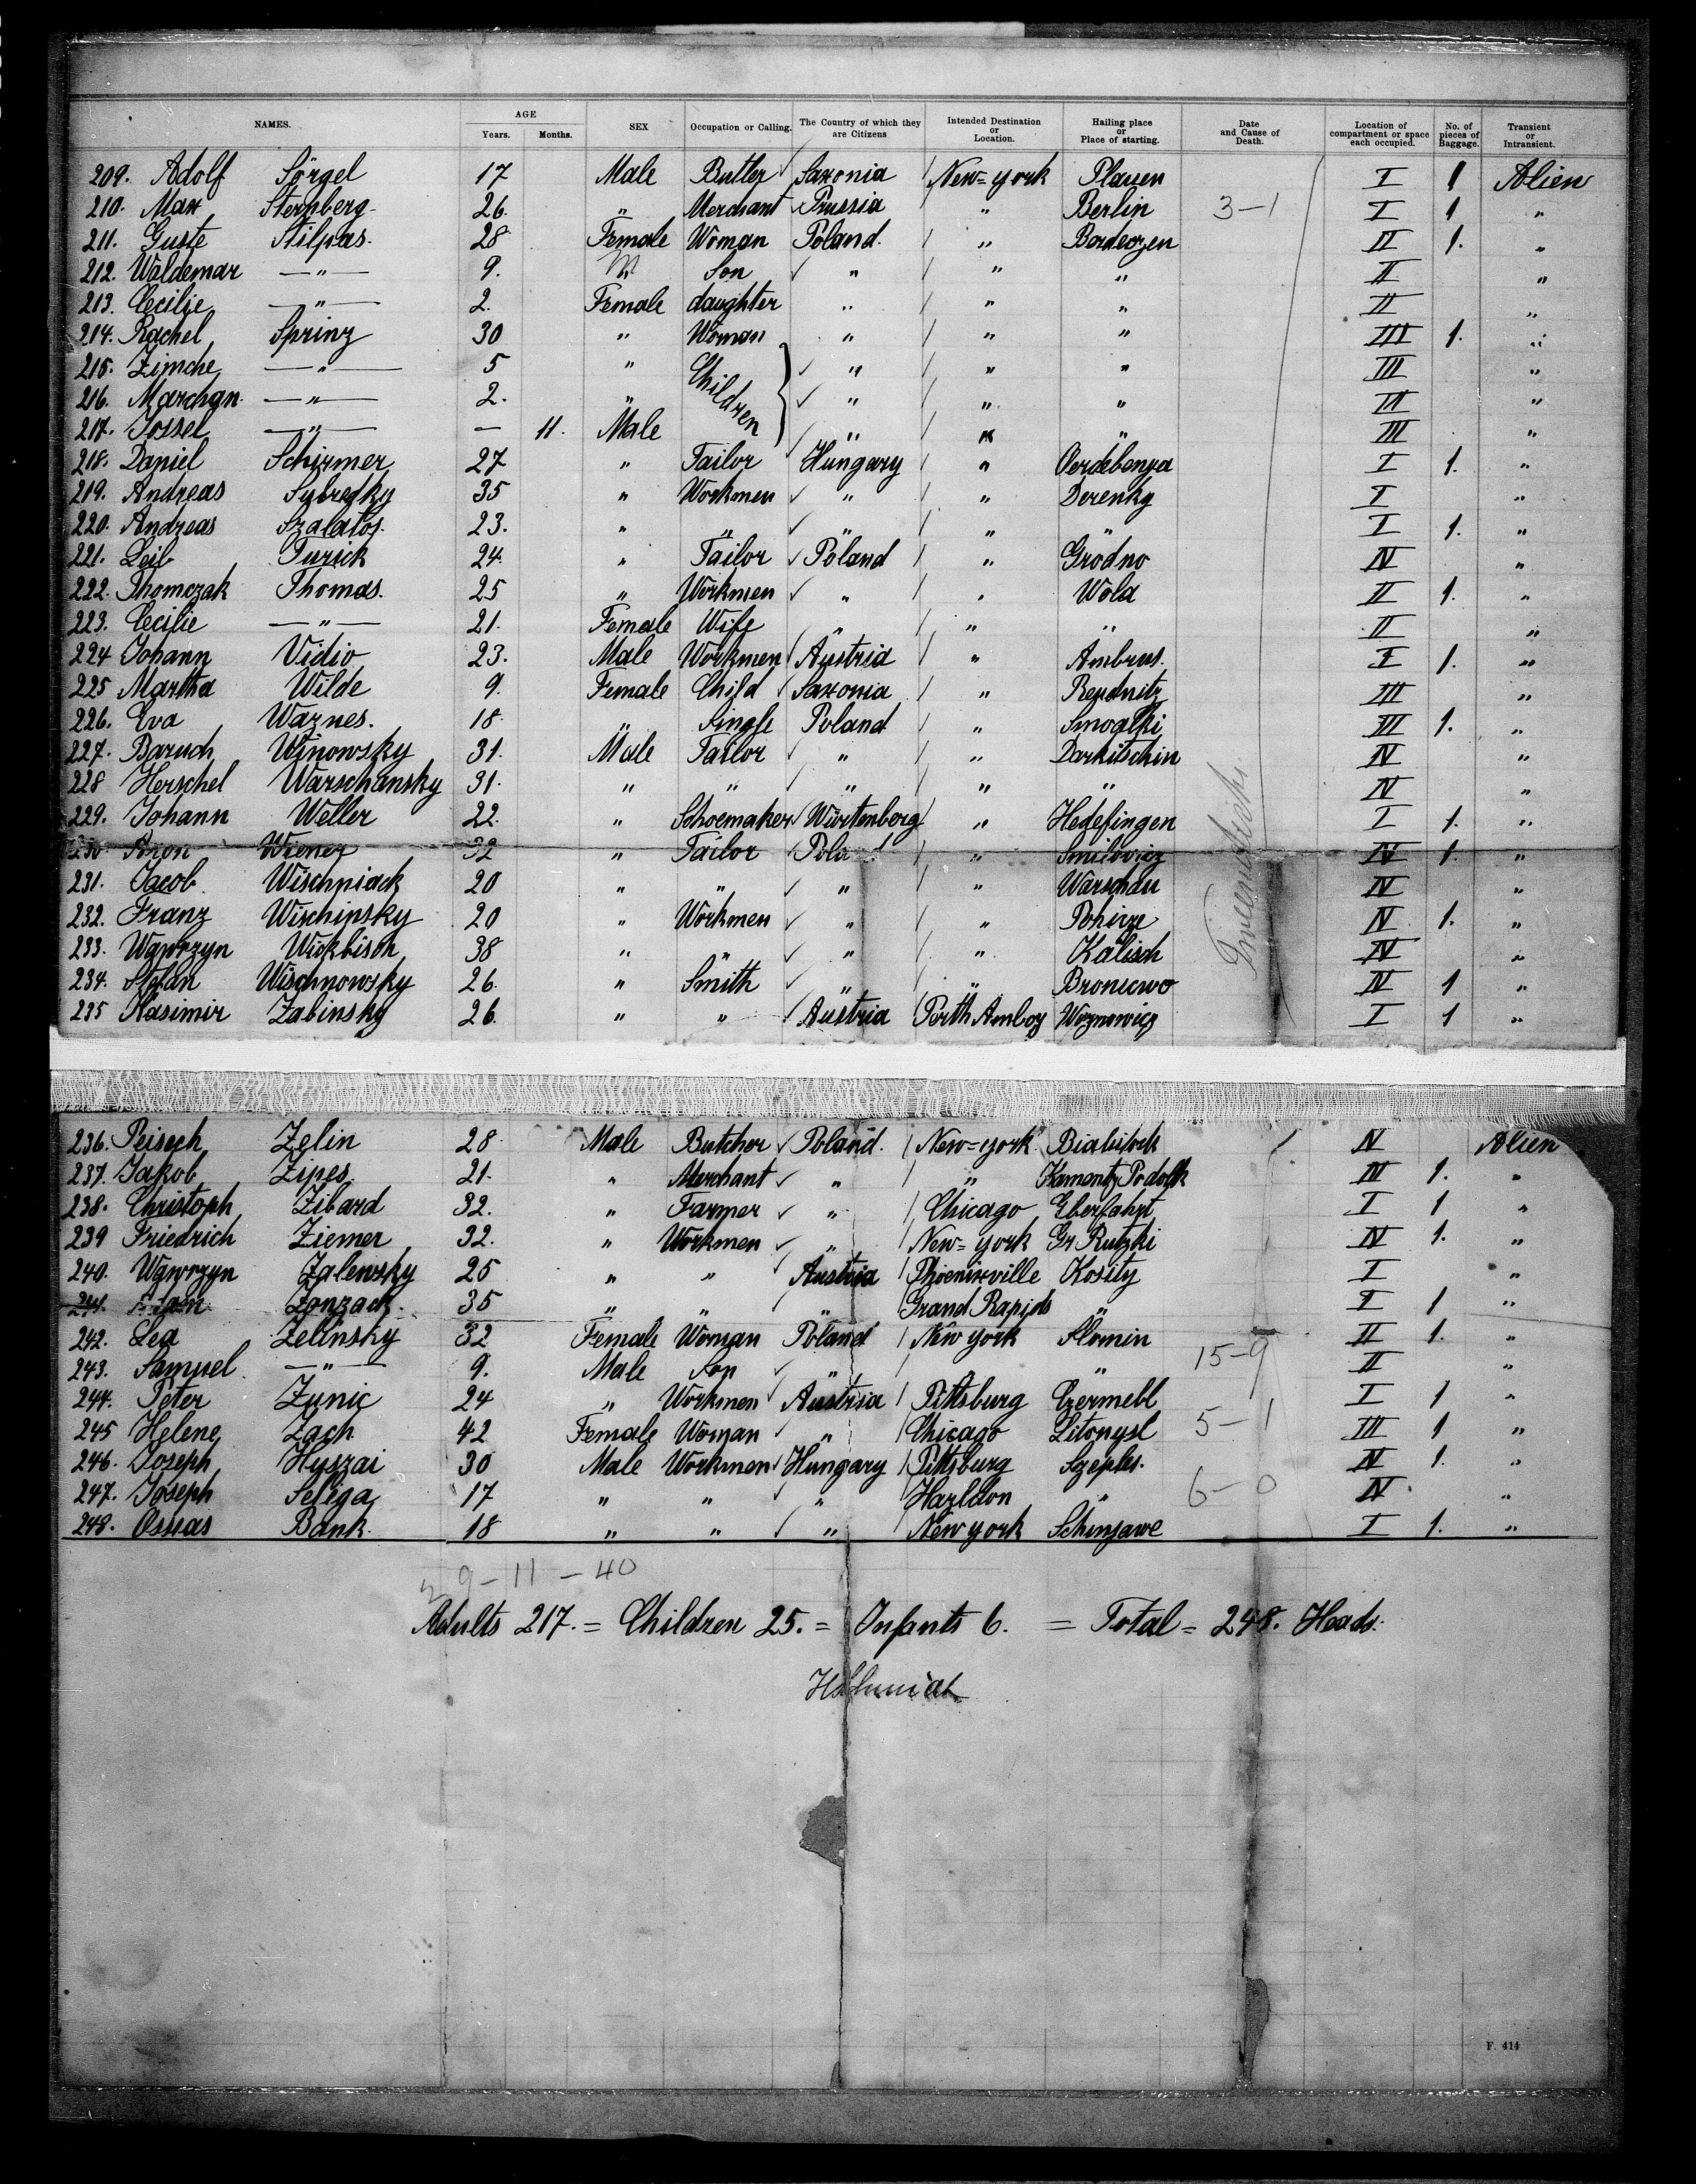 NAMES. AGE Years. Months. SEX Occupation or Calling. The Country of which they are Citizens Intended Destination or Location. Hailing place or Place of starting. Date and Cause of Death. Location of compartment or space each occupied. No. of pieces of Baggage. Transient or Intransient.
209. Adolf Sörgel 17 Male Butler Saxonia New-york Plauen I 1 Alien
210. Max Sternberg. 26. " Merchant Prussia " Berlin 3-1 I 1 "
211. Guste Stilpas. 28 Female Woman Poland. " Bordeozen II 1. "
212. Waldemar —"— 9. M Son " " " II "
213. Cecilie —"— 2. Female daughter " " " II "
214. Rachel Sprinz 30 " Woman " " " III 1. "
215. Zimche —"— 5 " Children " " " III "
216. Marchan —"— 2. " " " " III "
217. Jossel —"— — 11. Male " " " III "
218. Daniel Schirmer 27 " Tailor Hungary " Oerdebenya I 1. "
219. Andreas Sybregky 35 " Workmen " " Derenky I "
220. Andreas Szalatos. 23. " " " " " I 1. "
221. Leib Turick 24. " Tailor Poland " Grodno IV "
222. Thomczak Thomas. 25 " Workmen " " Wola II 1. "
223. Cecilie —"— 21. Female Wife " " " II "
224 Johann Vidio 23. Male Workmen Austria " Ambrus. I 1. "
225 Martha Wilde 9. Female Child Saxonia " Reudnitz III "
226. Eva Warnes. 18. " Single Poland " Smoalki III 1. "
227. Baruch Winowsky 31. Male Tailor " " Darkitschin IV "
228 Herschel Warschansky 31. " " " " " IV "
229. Johann Weller 22. " Schoemaker Würtenberg " Hedefingen I 1. "
230. Aron Wiener 32 " Tailor Poland " Smilovicz IV 1. "
231. Jacob Wischniack 20 " " " " Warschau IV "
232. Franz Wischinsky 20 " Workmen " " Pohirze IV 1. "
233. Wawrzyn Wickbisch 38 " " " " Kalisch IV "
234. Stefan Wischnowsky 26. " Smith " " Bronicwo IV 1 "
235 Kasimir Zabinsky 26. " " Austria Perth Amboy Woznowicz I 1 "
236. Peisech Zelin 28 Male Butcher Poland. New-york Bialistock IV Alien
237. Jakob Zipes 21. " Merchant " " Kamentz Podolsk III 1. "
238. Christoph Zibard 32. " Farmer " Chicago Eberfahrt I 1 "
239 Friedrich Ziemer 32. " Workmen " New-york Gr Rutzki IV 1. "
240. Wawrzyn Zalewsky 25 " " Austria Phoenixville Kosity I "
241. Zonzack. 35 " " " Grand Rapids " I 1 "
242. Lea Zelinsky 32 Female Woman Poland New york Slomin II 1. "
243. Samuel —"— 9. Male Son " " " 15-9 II "
244. Peter Zunic 24 " Workmen Austria Pittsburg Czermebl I 1 "
245 Helene Zach 42 Female Woman " Chicago Litomysl 5-1 III 1 "
246. Joseph Hyszai 30 Male Workmen Hungary Pittsburg Szeples. IV 1. "
247. Joseph Seliga 17 " " " Hazldon " 6-0 IV "
248. Ossias Bank. 18 " " " New york Schinjawe I 1. "
9-11-40
Adults 217. = Children 25. = Infants 6. = Total = 248. Heads.
F. 414